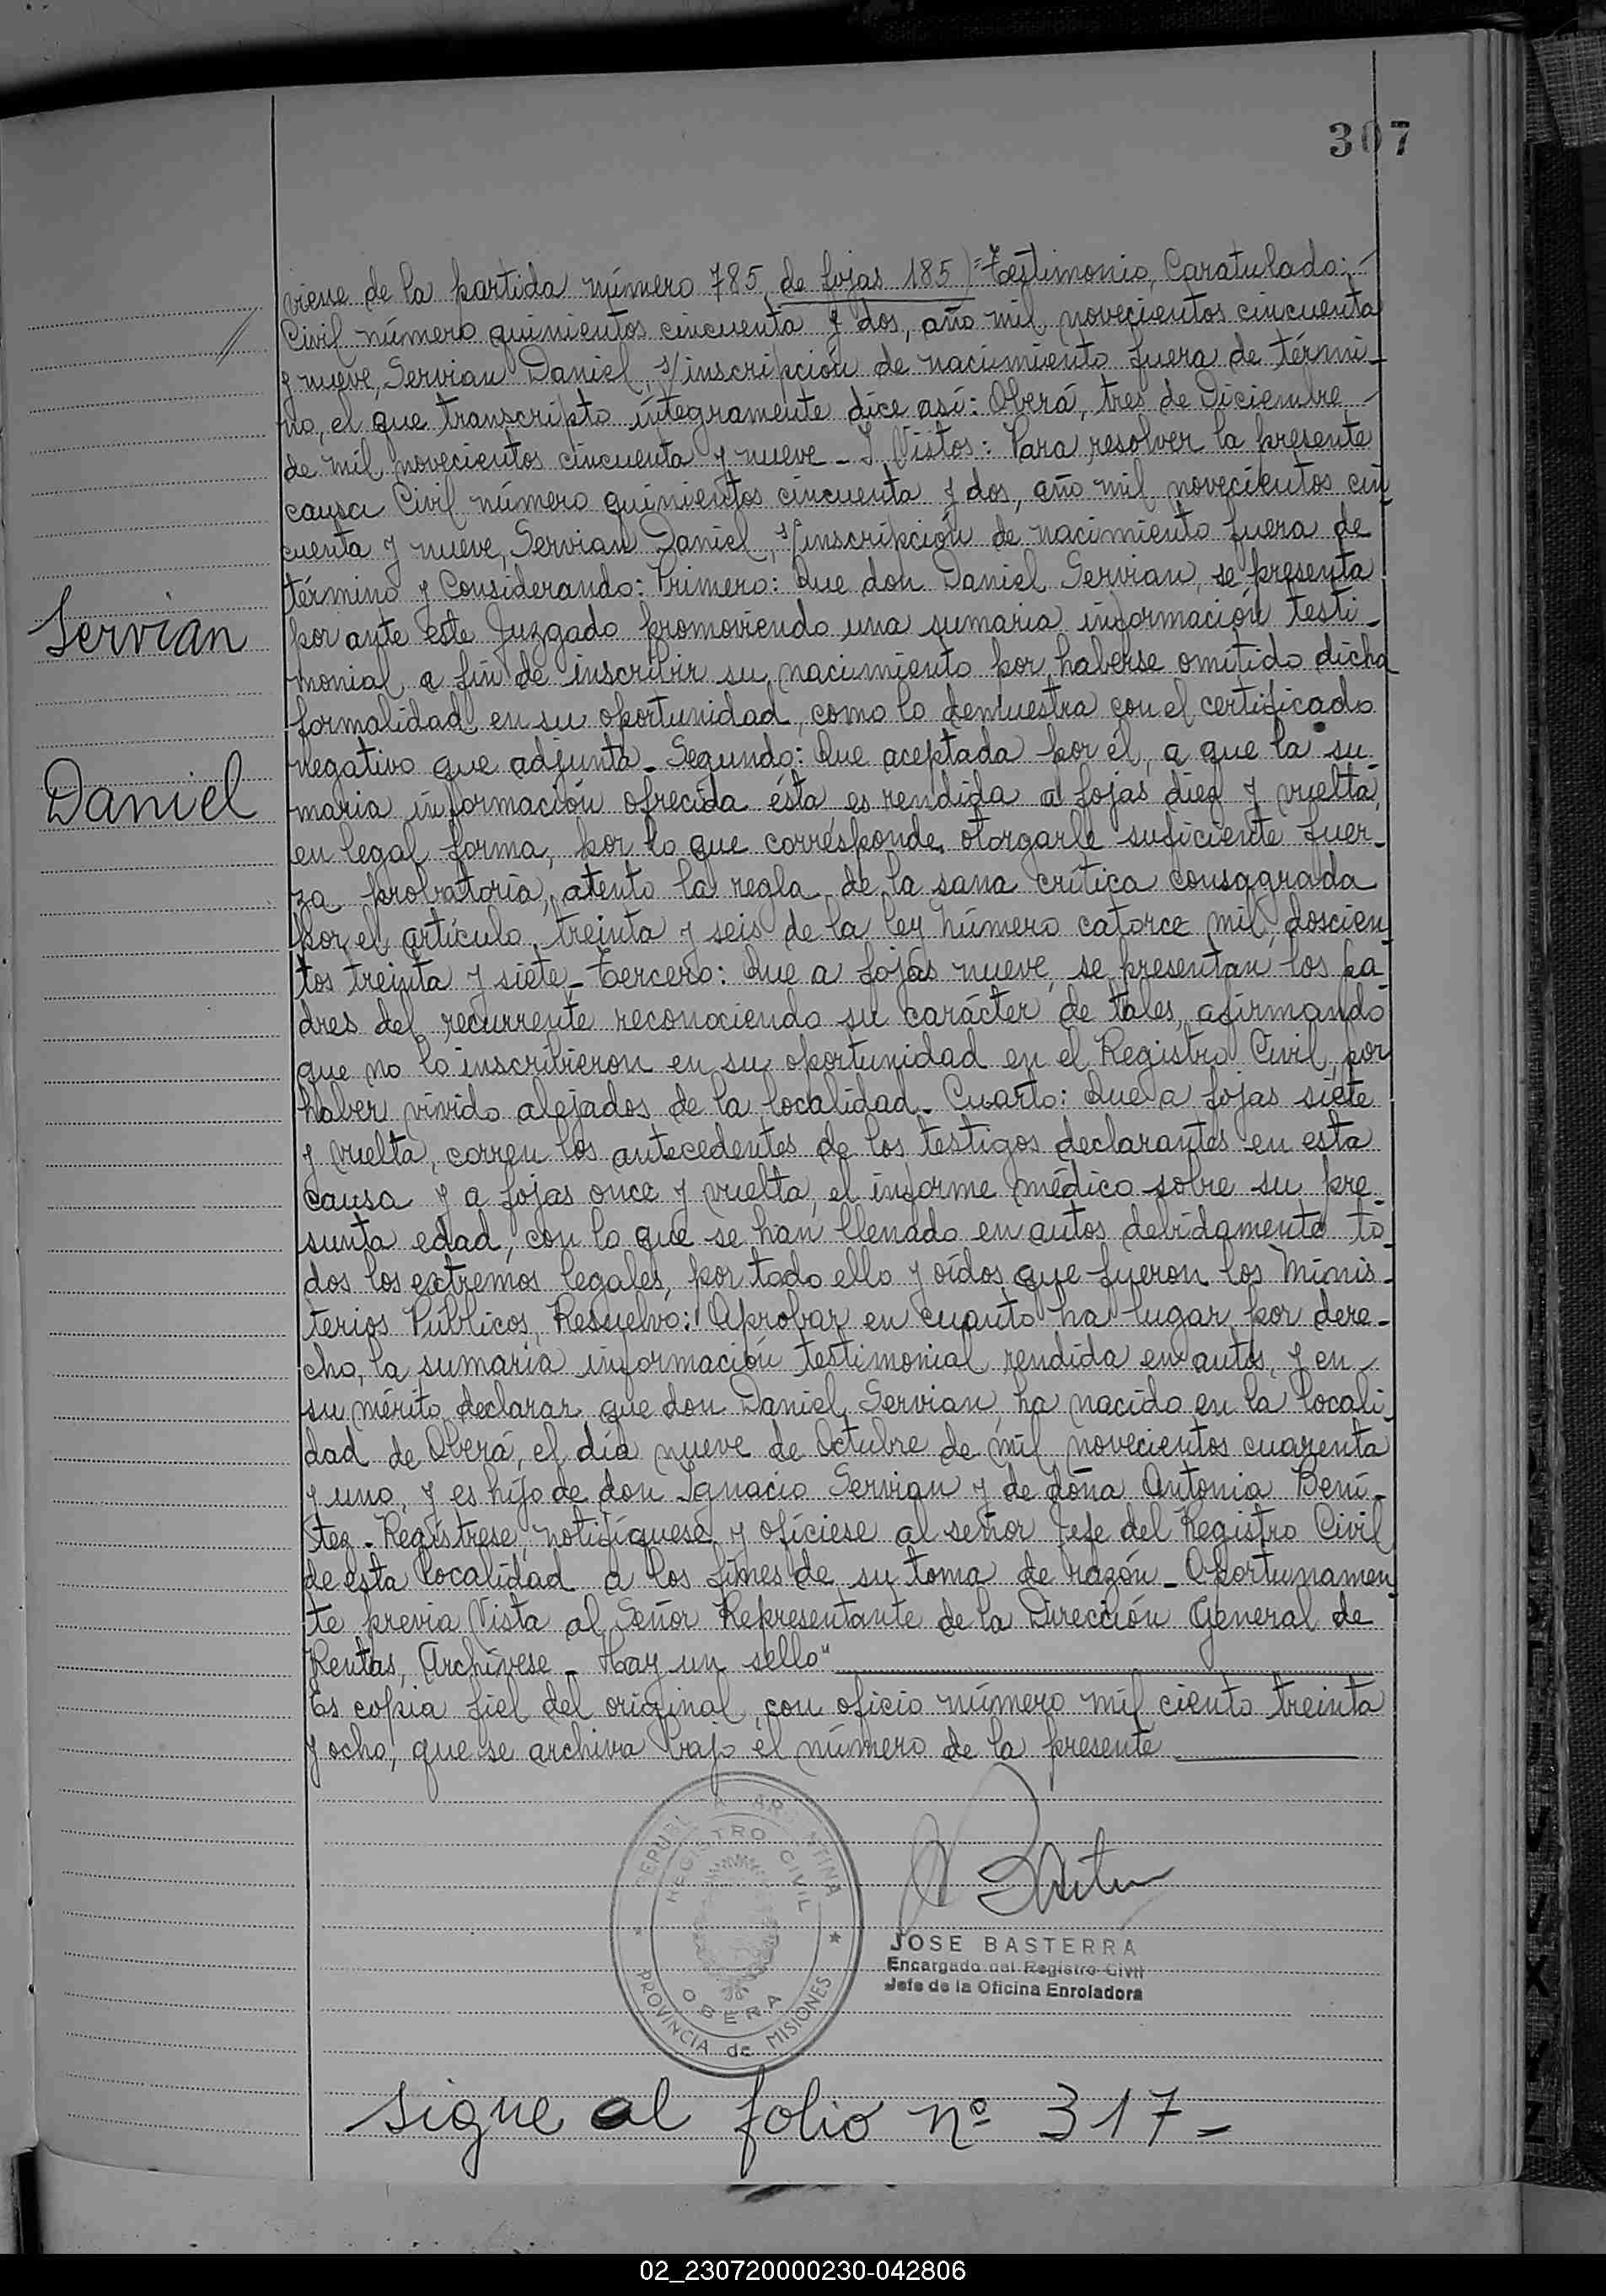 307
viene de la partida número 785, de fojas 185)=Testimonio, Caratulado:
Civil número quinientos cincuenta y dos, año mil novecientos cincuenta
y nueve, Servian Daniel, s/inscripción de nacimiento fuera de térmi-
no, el que transcripto íntegramente dice así: Oberá, tres de Diciembre
de mil novecientos cincuenta y nueve - Y Vistos: Para resolver la presente
causa Civil número quinientos cincuenta y dos, año mil novecientos cin
cuenta y nueve, Servian Daniel, s/inscripción de nacimiento fuera de
término y Considerando: Primero: Que don Daniel Servian, se presenta
Servian
por ante este Juzgado promoviendo una sumaria información testi-
monial a fin de inscribir su nacimiento por haberse omitido dicha
formalidad en su oportunidad, como lo demuestra con el certificado
negativo que adjunta - Segundo: Que aceptada por él, a que la su-
Daniel
maria información ofrecida ésta es rendida a fojas diez y vuelta,
en legal forma, por lo que corresponde otorgarle suficiente fuer-
za probatoria, atento la regla de la sana crítica consagrada
por el artículo treinta y seis de la ley número catorce mil, doscien
tos treinta y siete - Tercero: Que a fojas nueve, se presentan los pa
dres del recurrente reconociendo su carácter de tales, afirmando
que no lo inscribieron en su oportunidad en el Registro Civil, por
haber vivido alejados de la localidad - Cuarto: Que a fojas siete
y vuelta, corren los antecedentes de los testigos declarantes en esta
causa y a fojas once y vuelta, el informe médico sobre su pre-
sunta edad, con lo que se han llenado en autos debidamente to
dos los extremos legales, por todo ello y oídos que fueron los Minis-
terios Públicos, Resuelvo: Aprobar en cuanto ha lugar por dere-
cho, la sumaria información testimonial rendida en autos, y en
su mérito declarar que don Daniel Servian, ha nacido en la locali
dad de Oberá, el día nueve de Octubre de mil novecientos cuarenta
y uno, y es hijo de don Ignacio Servian y de doña Antonia Bení-
tez - Regístrese, notifíquese y ofíciese al señor Jefe del Registro Civil
de esta localidad a los fines de su toma de razón - Oportunamen
te previa Vista al Señor Representante de la Dirección General de
Rentas, Archívese - Hay un sello"
Es copia fiel del original, con oficio número mil ciento treinta
y ocho, que se archiva bajo el número de la presente
REPUBLICA ARGENTINA
REGISTRO CIVIL
OBERA
PROVINCIA de MISIONES
JOSE BASTERRA
Encargado del Registro Civil
Jefe de la Oficina Enroladora
sigue al folio nº 317-
02_230720000230-042806